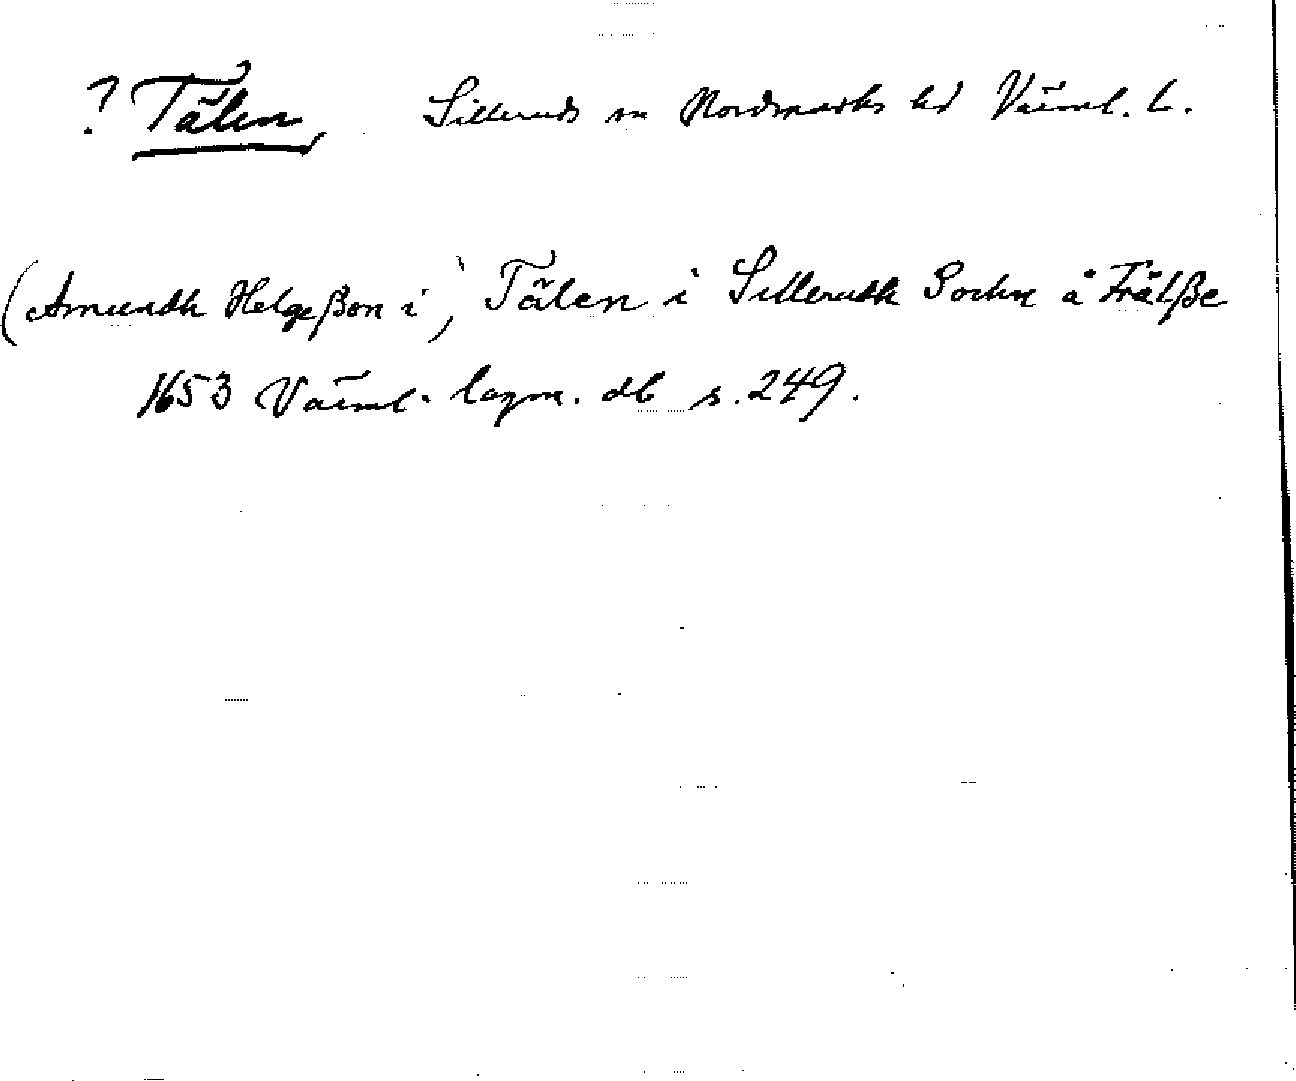 ? Tälen, Silleruds sn Nordmarks hd Värml. l.
(Amundh Helgeßon i) Tälen i Silleruth Sochn å Frälße
1653 Värml. lagm. db s. 249.